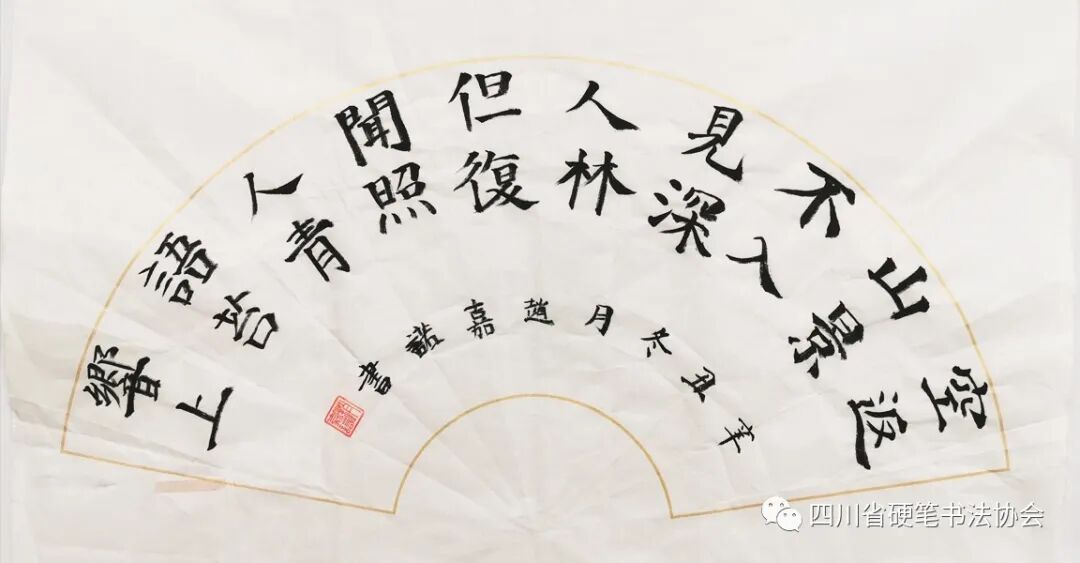 空山不見人但聞人語響
返景入深林復照青苔上
辛丑冬月趙嘉書
四川省硬笔书法协会